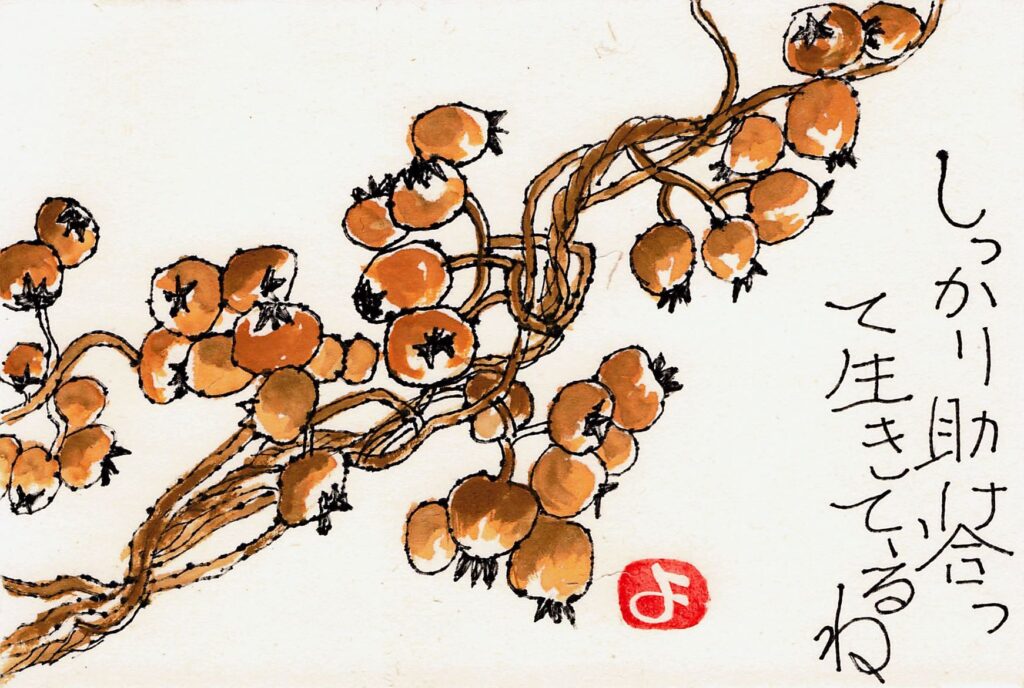 しっかり助け合っ
て生きてゝるね
よ